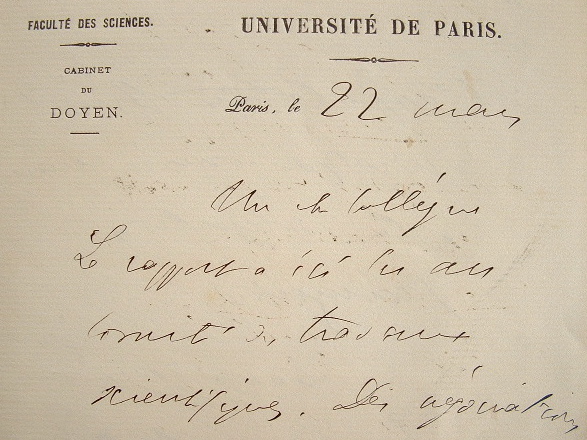 FACULTÉ DES SCIENCES.
UNIVERSITÉ DE PARIS.
CABINET
DU
DOYEN.
Paris, le 22 mars
Mon cher Collègue
Le rapport a été lu au
Comité des travaux
scientifiques. Des négociations